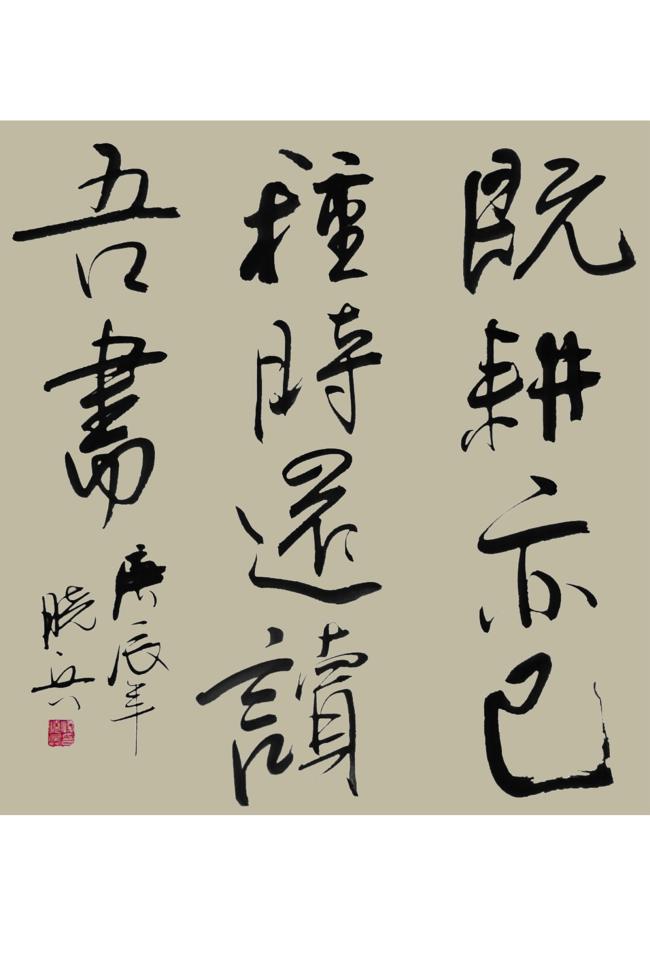 既耕亦已
種時還讀
吾書
庚辰年
晓